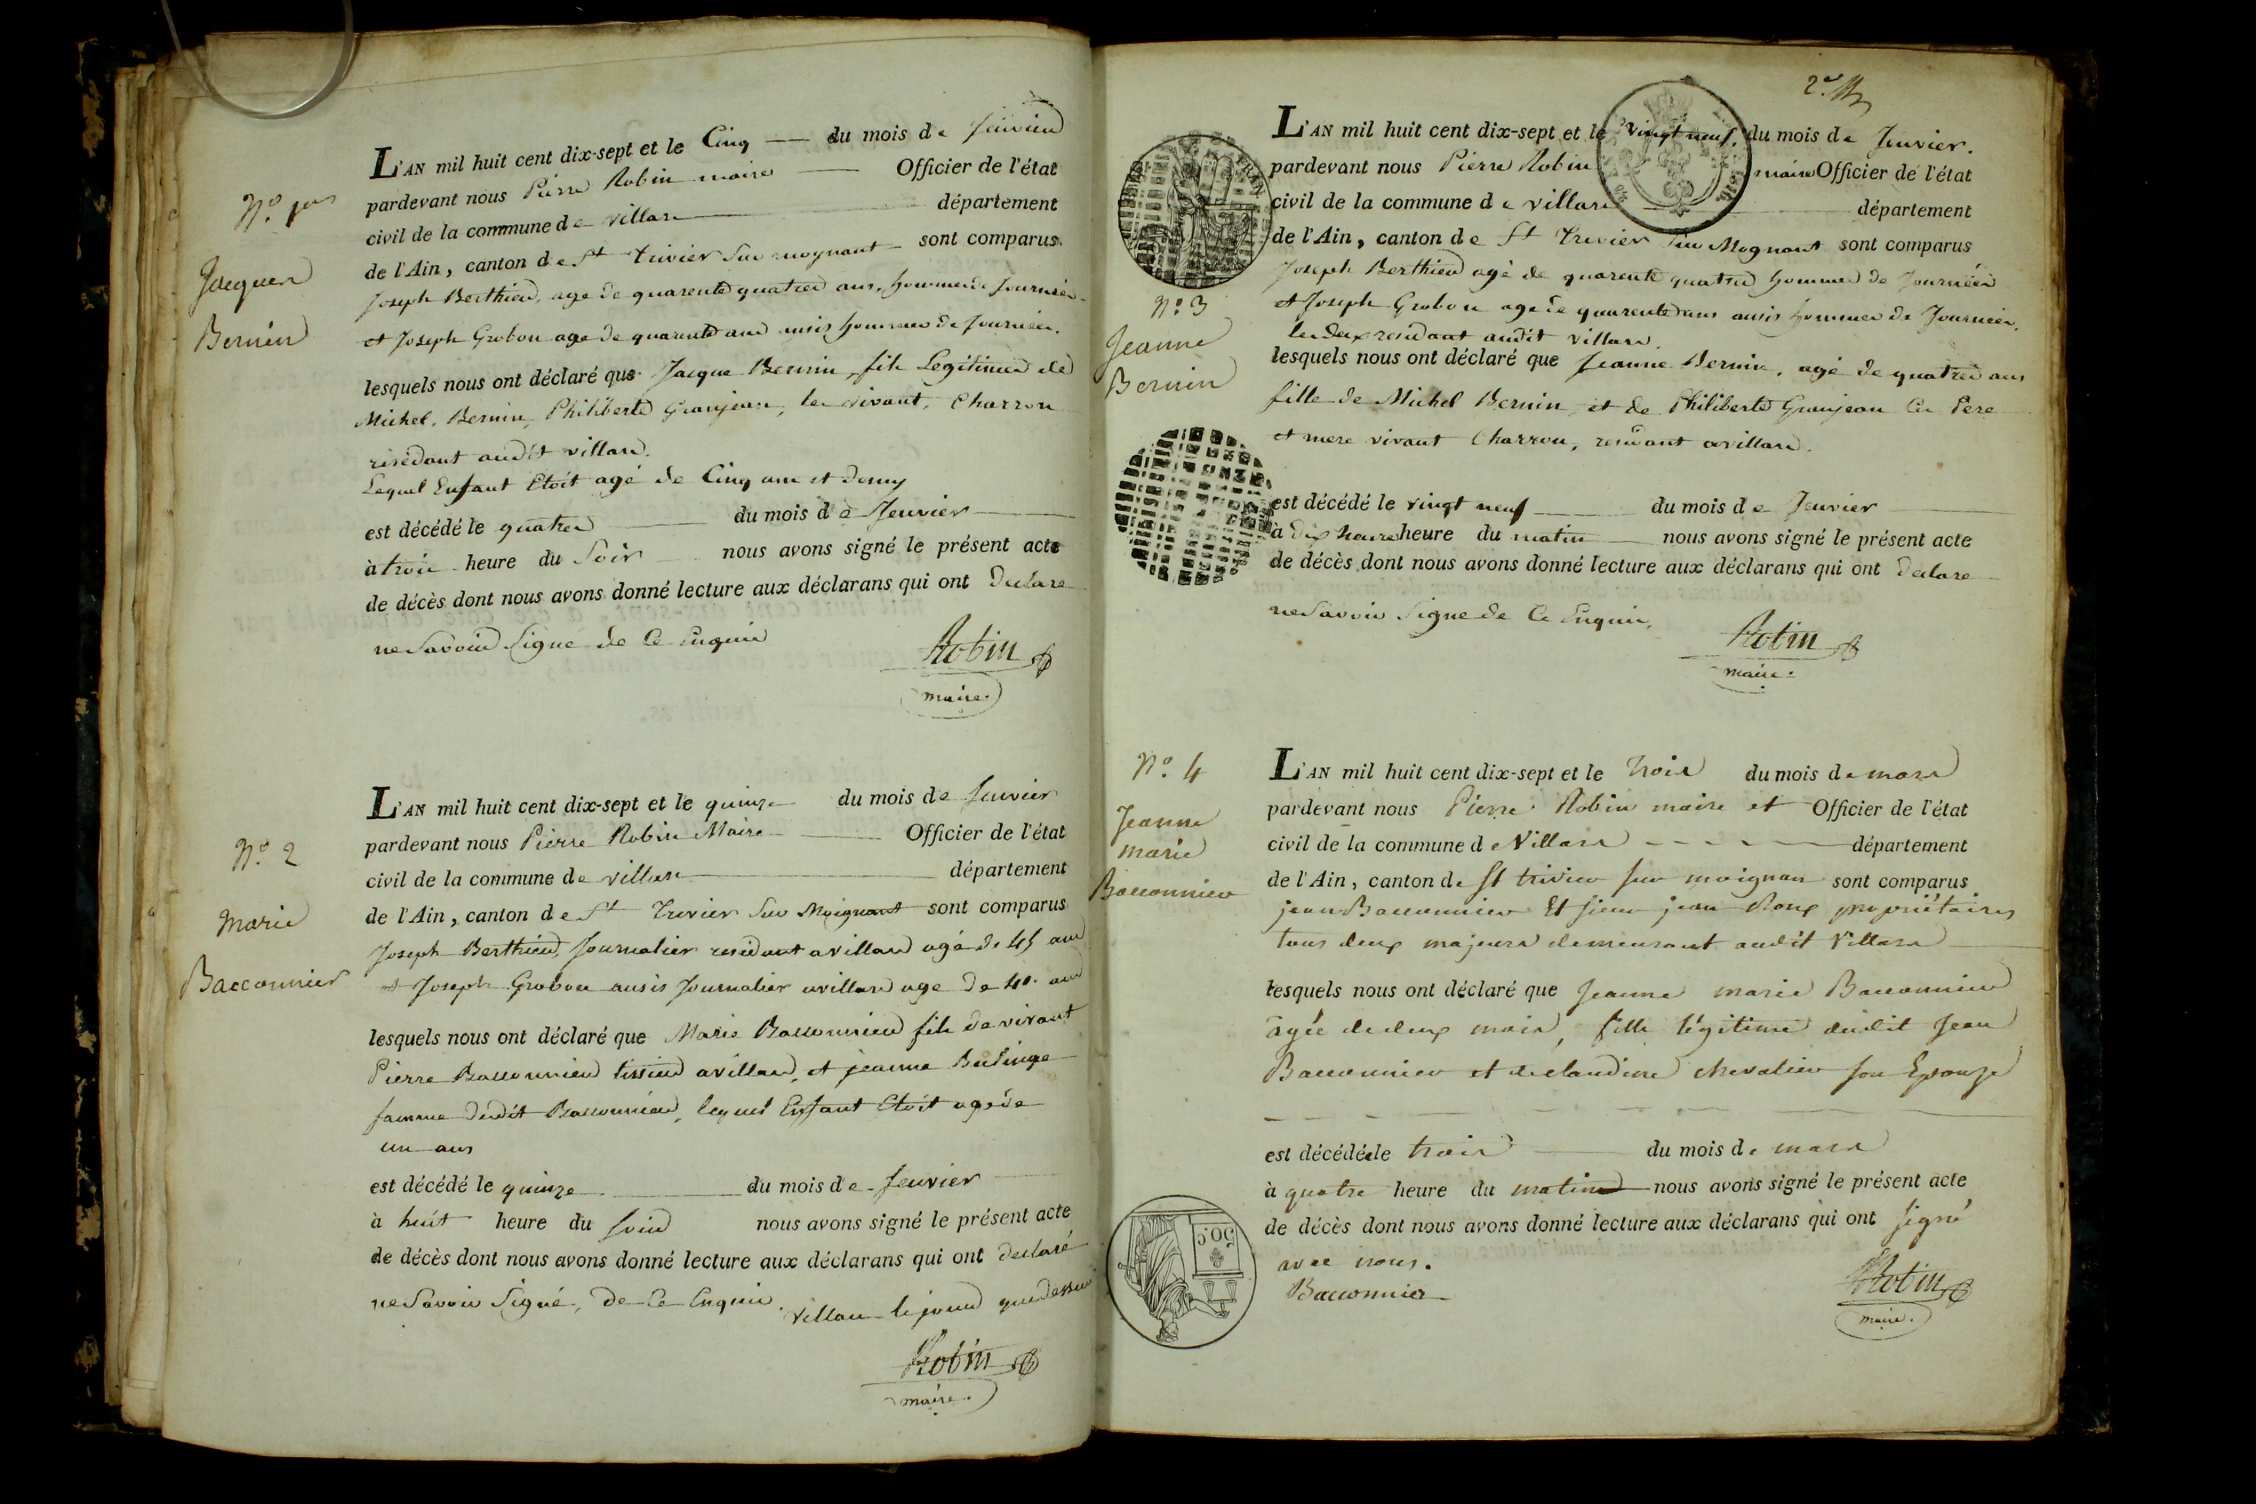 N.o 1er
Jacques
Bernin
L'AN mil huit cent dix-sept et le Cinq du mois de Jenvier
pardevant nous Pierre Robin maire Officier de l'état
civil de la commune de villars département
de l'Ain, canton de St trivier Sur moignant sont comparus
Joseph Berthied, age de quarente quatres ans, hommes de Journées
et Joseph Grobon age de quarente ans ausis hommes de Journées.
lesquels nous ont déclaré que Jacque Bernin, fils Legitimes de
Michel Bernin, Philiberte Granjean, les vivant, Charron
residant audit villars.
Lequel Enfant Etoit agé de Cinq ans et demy
est décédé le quatre du mois de Jenvier
à trois heure du Soir nous avons signé le présent acte
de décès dont nous avons donné lecture aux déclarans qui ont Declare
ne Savoir Signe de Ce Enquis
Robin
maire.
N.o 2
Marie
Bacconnier
L'AN mil huit cent dix-sept et le quinze du mois de Jenvier
pardevant nous Pierre Robin Maire Officier de l'état
civil de la commune de villars département
de l'Ain, canton de St Trivier Sur Moignant sont comparus
Joseph Berthied, Journalier residant a villars agé de 45 ans
et Joseph Grobon ausis Journalier a villars age de 40 ans
lesquels nous ont déclaré que Marie Bacconnier file de vivant
Pierre Bacconnier tissier a villars, et jeanne
famme dudit Bacconnier, lequel Enfant Etoit age de
un ans
est décédé le quinze du mois de Jenvier
à huit heure du soir nous avons signé le présent acte
de décès dont nous avons donné lecture aux déclarans qui ont declaré
ne Savoir Signé, de Ce Enquis. villars le jour que dessus
Robin
maire.
2e
N.o 3
Jeanne
Bernin
L'AN mil huit cent dix-sept et le vingt neuf. du mois de Jenvier.
pardevant nous Pierre Robin maire Officier de l'état
civil de la commune de villars département
de l'Ain, canton de St Trivier Sur Mognant sont comparus
Joseph Berthied agé de quarente quatres hommes de Journées
et Joseph Grobon age de quarente ans ausis hommes de Journées,
les deux residant audit villars.
lesquels nous ont déclaré que Jeanne Bernin, agé de quatre ans
fille de Michel Bernin, et de Philiberte Granjean Ces Pere
et mere vivant Charron, residant a villars.
est décédé le vingt neuf du mois de Jenvier
à dix heure heure du matin nous avons signé le présent acte
de décès dont nous avons donné lecture aux déclarans qui ont declare
ne Savoir Signe de Ce Enquis,
Robin
maire.
N.o 4
Jeanne
marie
Bacconnier
L'AN mil huit cent dix-sept et le trois du mois de mars
pardevant nous Pierre Robin maire et Officier de l'état
civil de la commune de Villars département
de l'Ain, canton de St trivier sur moignan sont comparus
jean Bacconnier Et sieur jean Roux propriétaires
tous deux majeurs demeurant audit Villars
lesquels nous ont déclaré que Jeanne marie Bacconnier
agée de deux mois, fille légitime dudit Jean
Bacconnier et de claudine chevalier son Epouze
est décédée le trois du mois de mars
à quatre heure du matin nous avons signé le présent acte
de décès dont nous avons donné lecture aux déclarans qui ont signé
avec nous.
Bacconnier
Robin
maire.
50.c